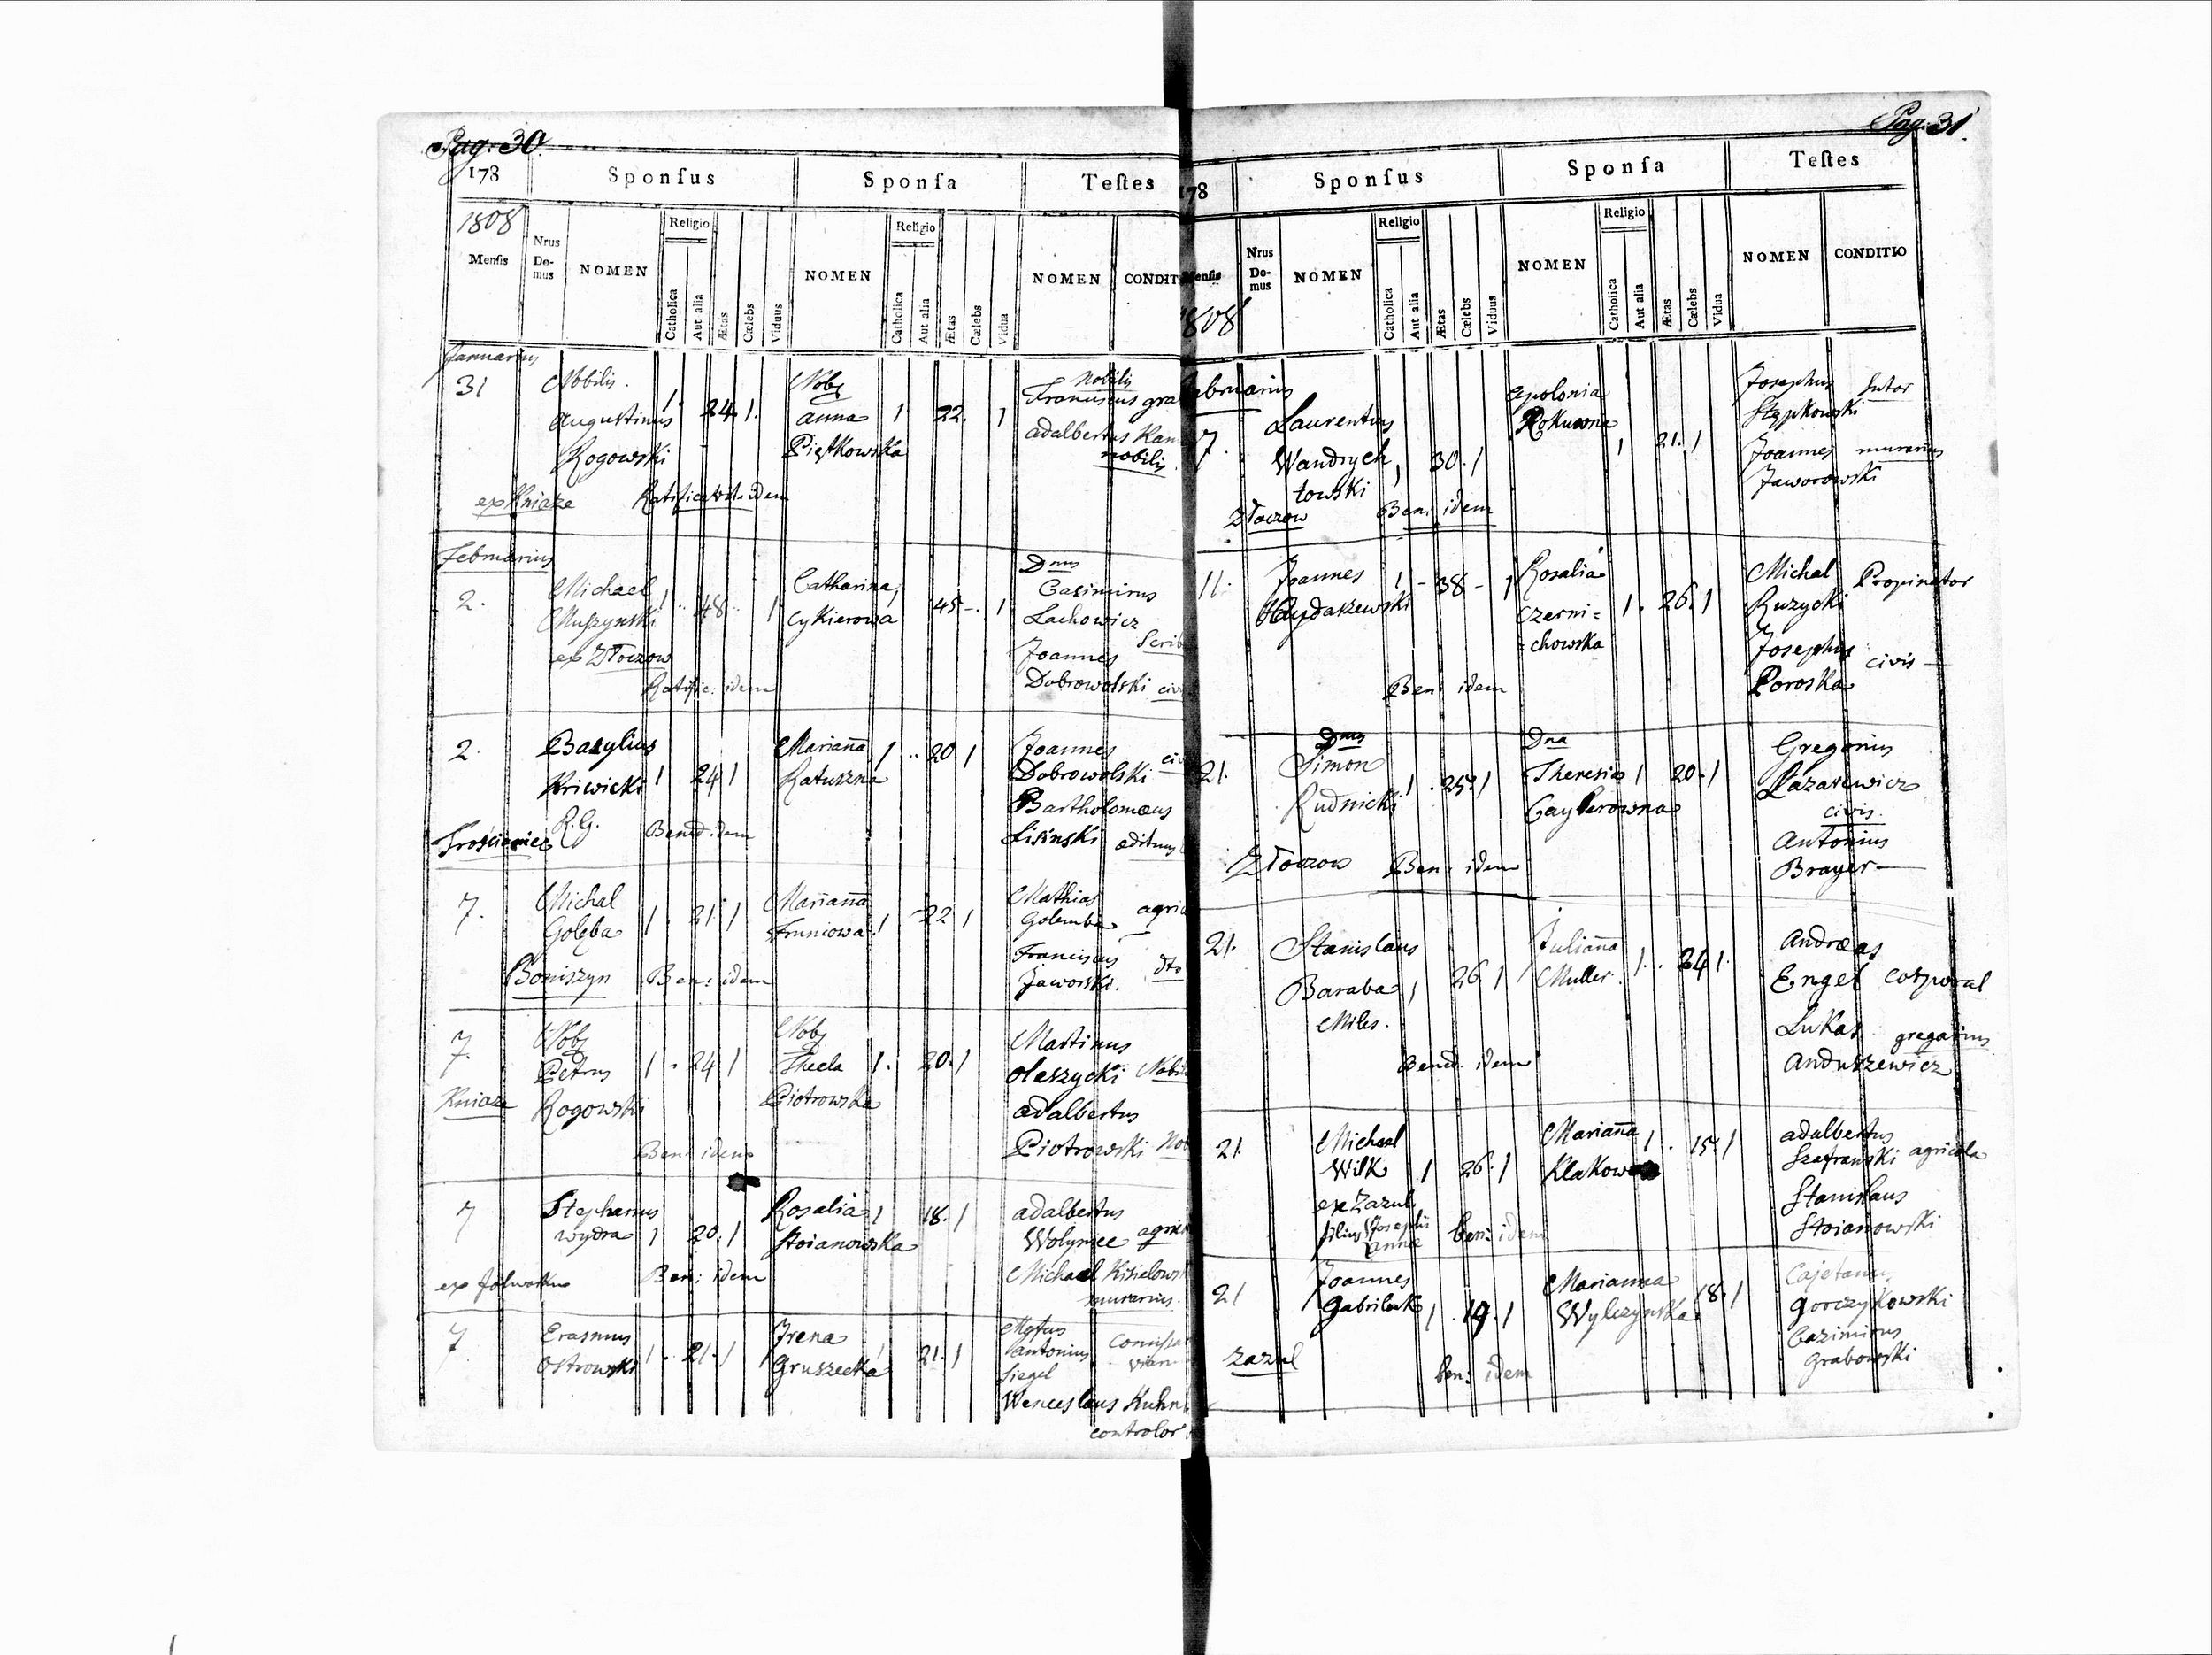 Pag. 30.
178 Sponſus Sponſa Teſtes
1808
Menſis Nrus Do-mus NOMEN Religio Catholica Aut alia Ætas Cælebs Viduus NOMEN Religio Catholica Aut alia Ætas Cælebs Vidua NOMEN CONDIT
Januarius
31 Nobilis Augustinus Rogowski 1. 24. 1. Nob. anna Piętkowska 1 22. 1 nobilis Franciscus gra
adalbertus Kam
nobilis
ex Kniaze Ratificavit idem
Februarius
2. Michael Muszynski 1 48 1 Catharina Cykierowa 1 45 1 Dnus Casimirus Lachowicz Scrib
ex Złoczow Joannes Dobrowolski civ
Ratific: idem
2. Bazylius Kriwicki 1 24 1 Marianna Ratuszna 1 20 1 Joannes Dobrowolski civ
R. G. Bartholomæus Lisinski ædituus
Trościaniec Bened. idem
7. Michal Golęba 1. 21. 1 Marianna Fruniowa 1 22 1 Mathias Golemba agric
Franciscus Jaworski dto
Boniszyn Ben: idem
7. Nob. Petrus Rogowski 1 24 1 Nob. Thecla Piotrowska 1. 20. 1 Martinus Oleszycki Nobi
Kniaze adalbertus Piotrowski Nob
Ben: idem
7 Stephanus Wydra 1 20. 1 Rosalia Stoianowska 1 18. 1 adalbertus Wolyniec agric
ex folwarkno Ben: idem Michael Kisielows
murarius.
7 Erasmus Ostrowski 1. 21. 1 Irena Gruszecka 1 21. 1 antonius Siegel
Wenceslaus Kuhn
controlor
Pag. 31.
178 Sponſus Sponſa Teſtes
Menſis Nrus Do-mus NOMEN Religio Catholica Aut alia Ætas Cælebs Viduus NOMEN Religio Catholica Aut alia Ætas Cælebs Vidua NOMEN CONDITIO
1808
ebruarius
7. Laurentius Wandrychtowski 1 30. 1 Apolonia Rokuwna 1 21. 1 Josephus Stępkowski Sutor
Joannes Jaworowski murarius
Złoczow Ben: idem
11. Joannes Haydaszewski 1 - 38 - 1 Rosalia Czerni=chowska 1. 26. 1 Michal Ruzycki Propinator
Josephus Poroska civis
Ben: idem
21. Dnus Simon Rudnicki 1. 25. 1 Dna Theresia Gayherowna 1 20. 1 Gregorius Łazarewicz
civis.
Antonius Brayer
Złoczow Ben: idem
21. Stanislaus Baraba 1 26. 1 Julianna Muller 1. 24 1. Andræas Engel Corporal
Miles. Lukas Anduszewicz gregarius
Bened. idem
21. Michael Wilk 1 26. 1 Marianna 1. 15. 1 adalbertus Szafranski agricola
ex Zazul Stanislaus Stoianowski
filius Josephi annæ ben: idem
21 Joannes Gabriluk 1. 19. 1 Marianna Wylczynska 18. 1 Cajetanus Gorczykowski
Cazimirus Grabowski
Zazul ben: idem